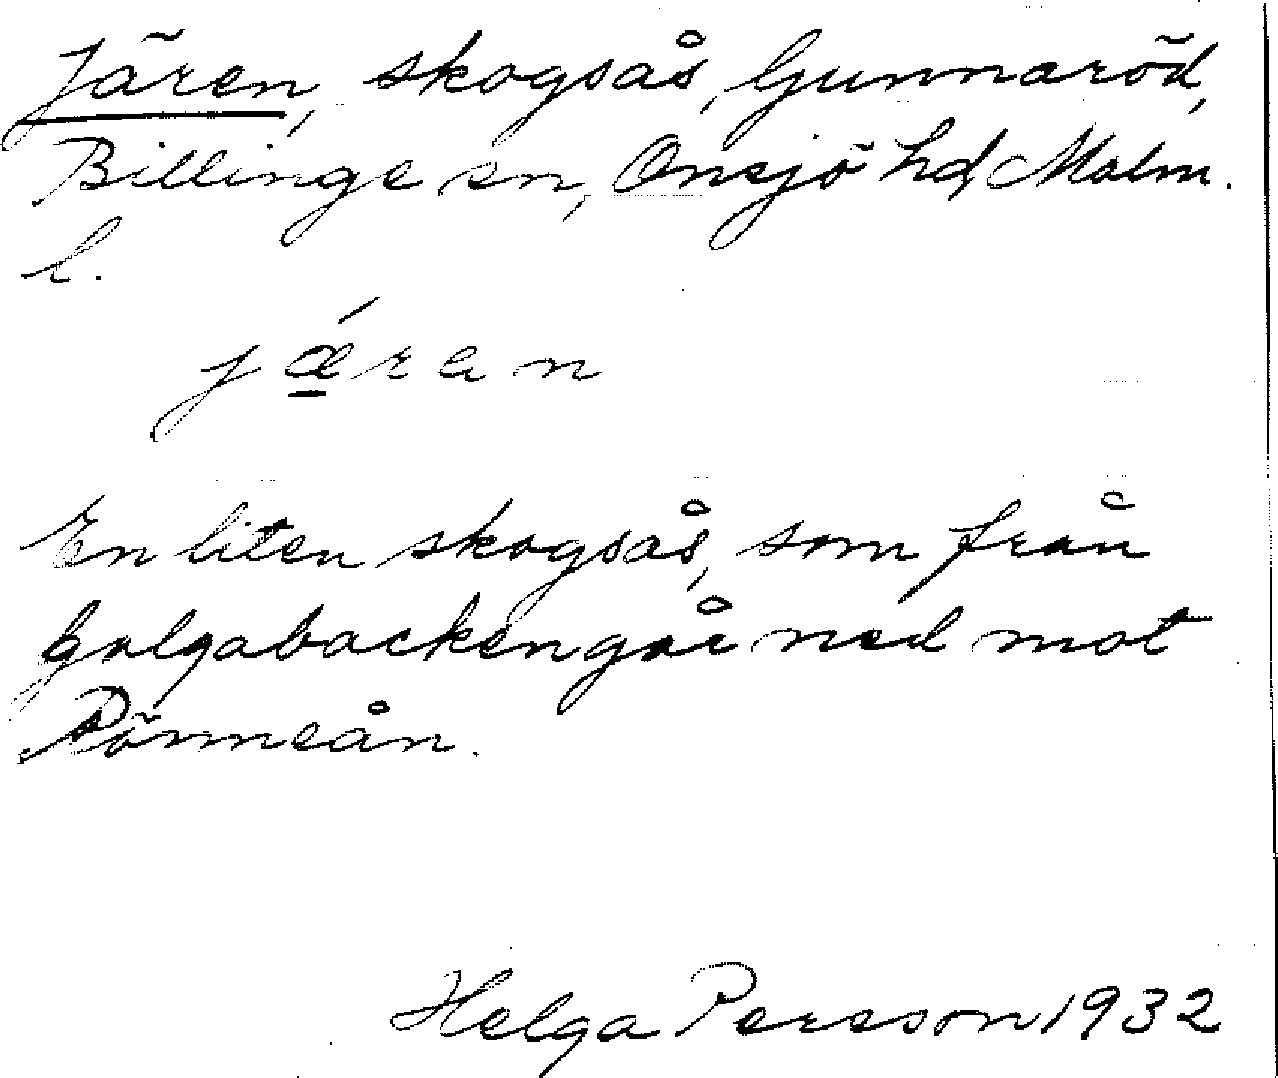 Jären, skogsås, Gunnaröd,
Billinge sn, Onsjö hd, Malm.
l.
jǽran
En liten skogsås, som från
Galgabacken går ned mot
Rönneån.
Helga Persson 1932